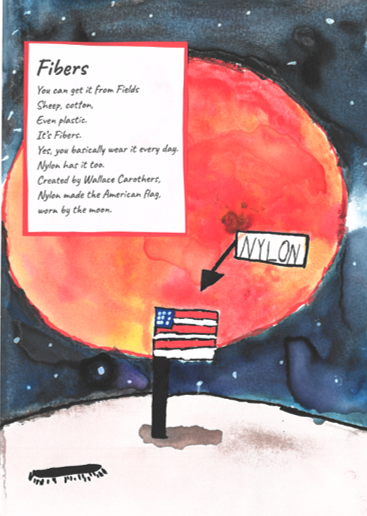 Fibers
You can get it from Fields
Sheep, cotton,
Even plastic.
It's Fibers.
Yes, you basically wear it every day.
Nylon has it too.
Created by Wallace Carothers,
Nylon made the American flag,
worn by the moon.
NYLON